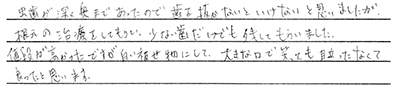 虫歯が深く奥まであったので歯を抜かないといけないと思いましたが、
根元の治療をしてもらい、少ない歯だけでも残してもらいました。
値段が高かったですが白い被せ物にして、大きな口で笑っても目立たなくて
良かったと思います。